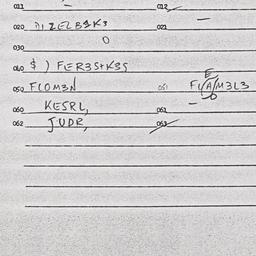 011 — 012
020 DIZELB3K3 021 —
030 0
040 $ ) FER3S+K3S
050 FLOM3N 051 FLAM3L3
060 KESRL, 061
062 JUDR, 063